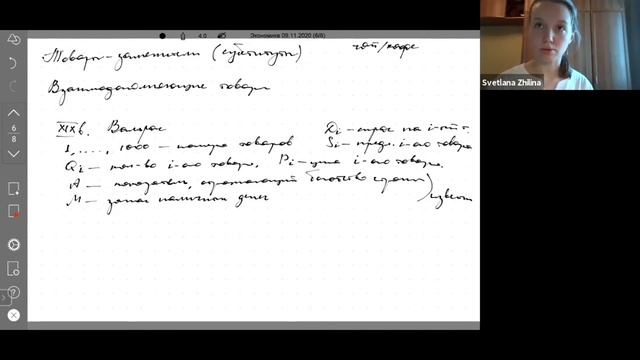 4.0 Экономика 09.11.2020 (6/8)
Товары-заменители (субституты) чай/кофе
Взаимодополняющие товары
XIX в. Вальрас Di – спрос на i-тый т.
1, ...., 1000 – номера товаров Si – предл. i-ого товара
Qi – кол-во i-ого товара, Pi – цена i-ого товара.
A – показатель, отражающий богатство страны
M – запас наличных денег
6
8
Svetlana Zhilina